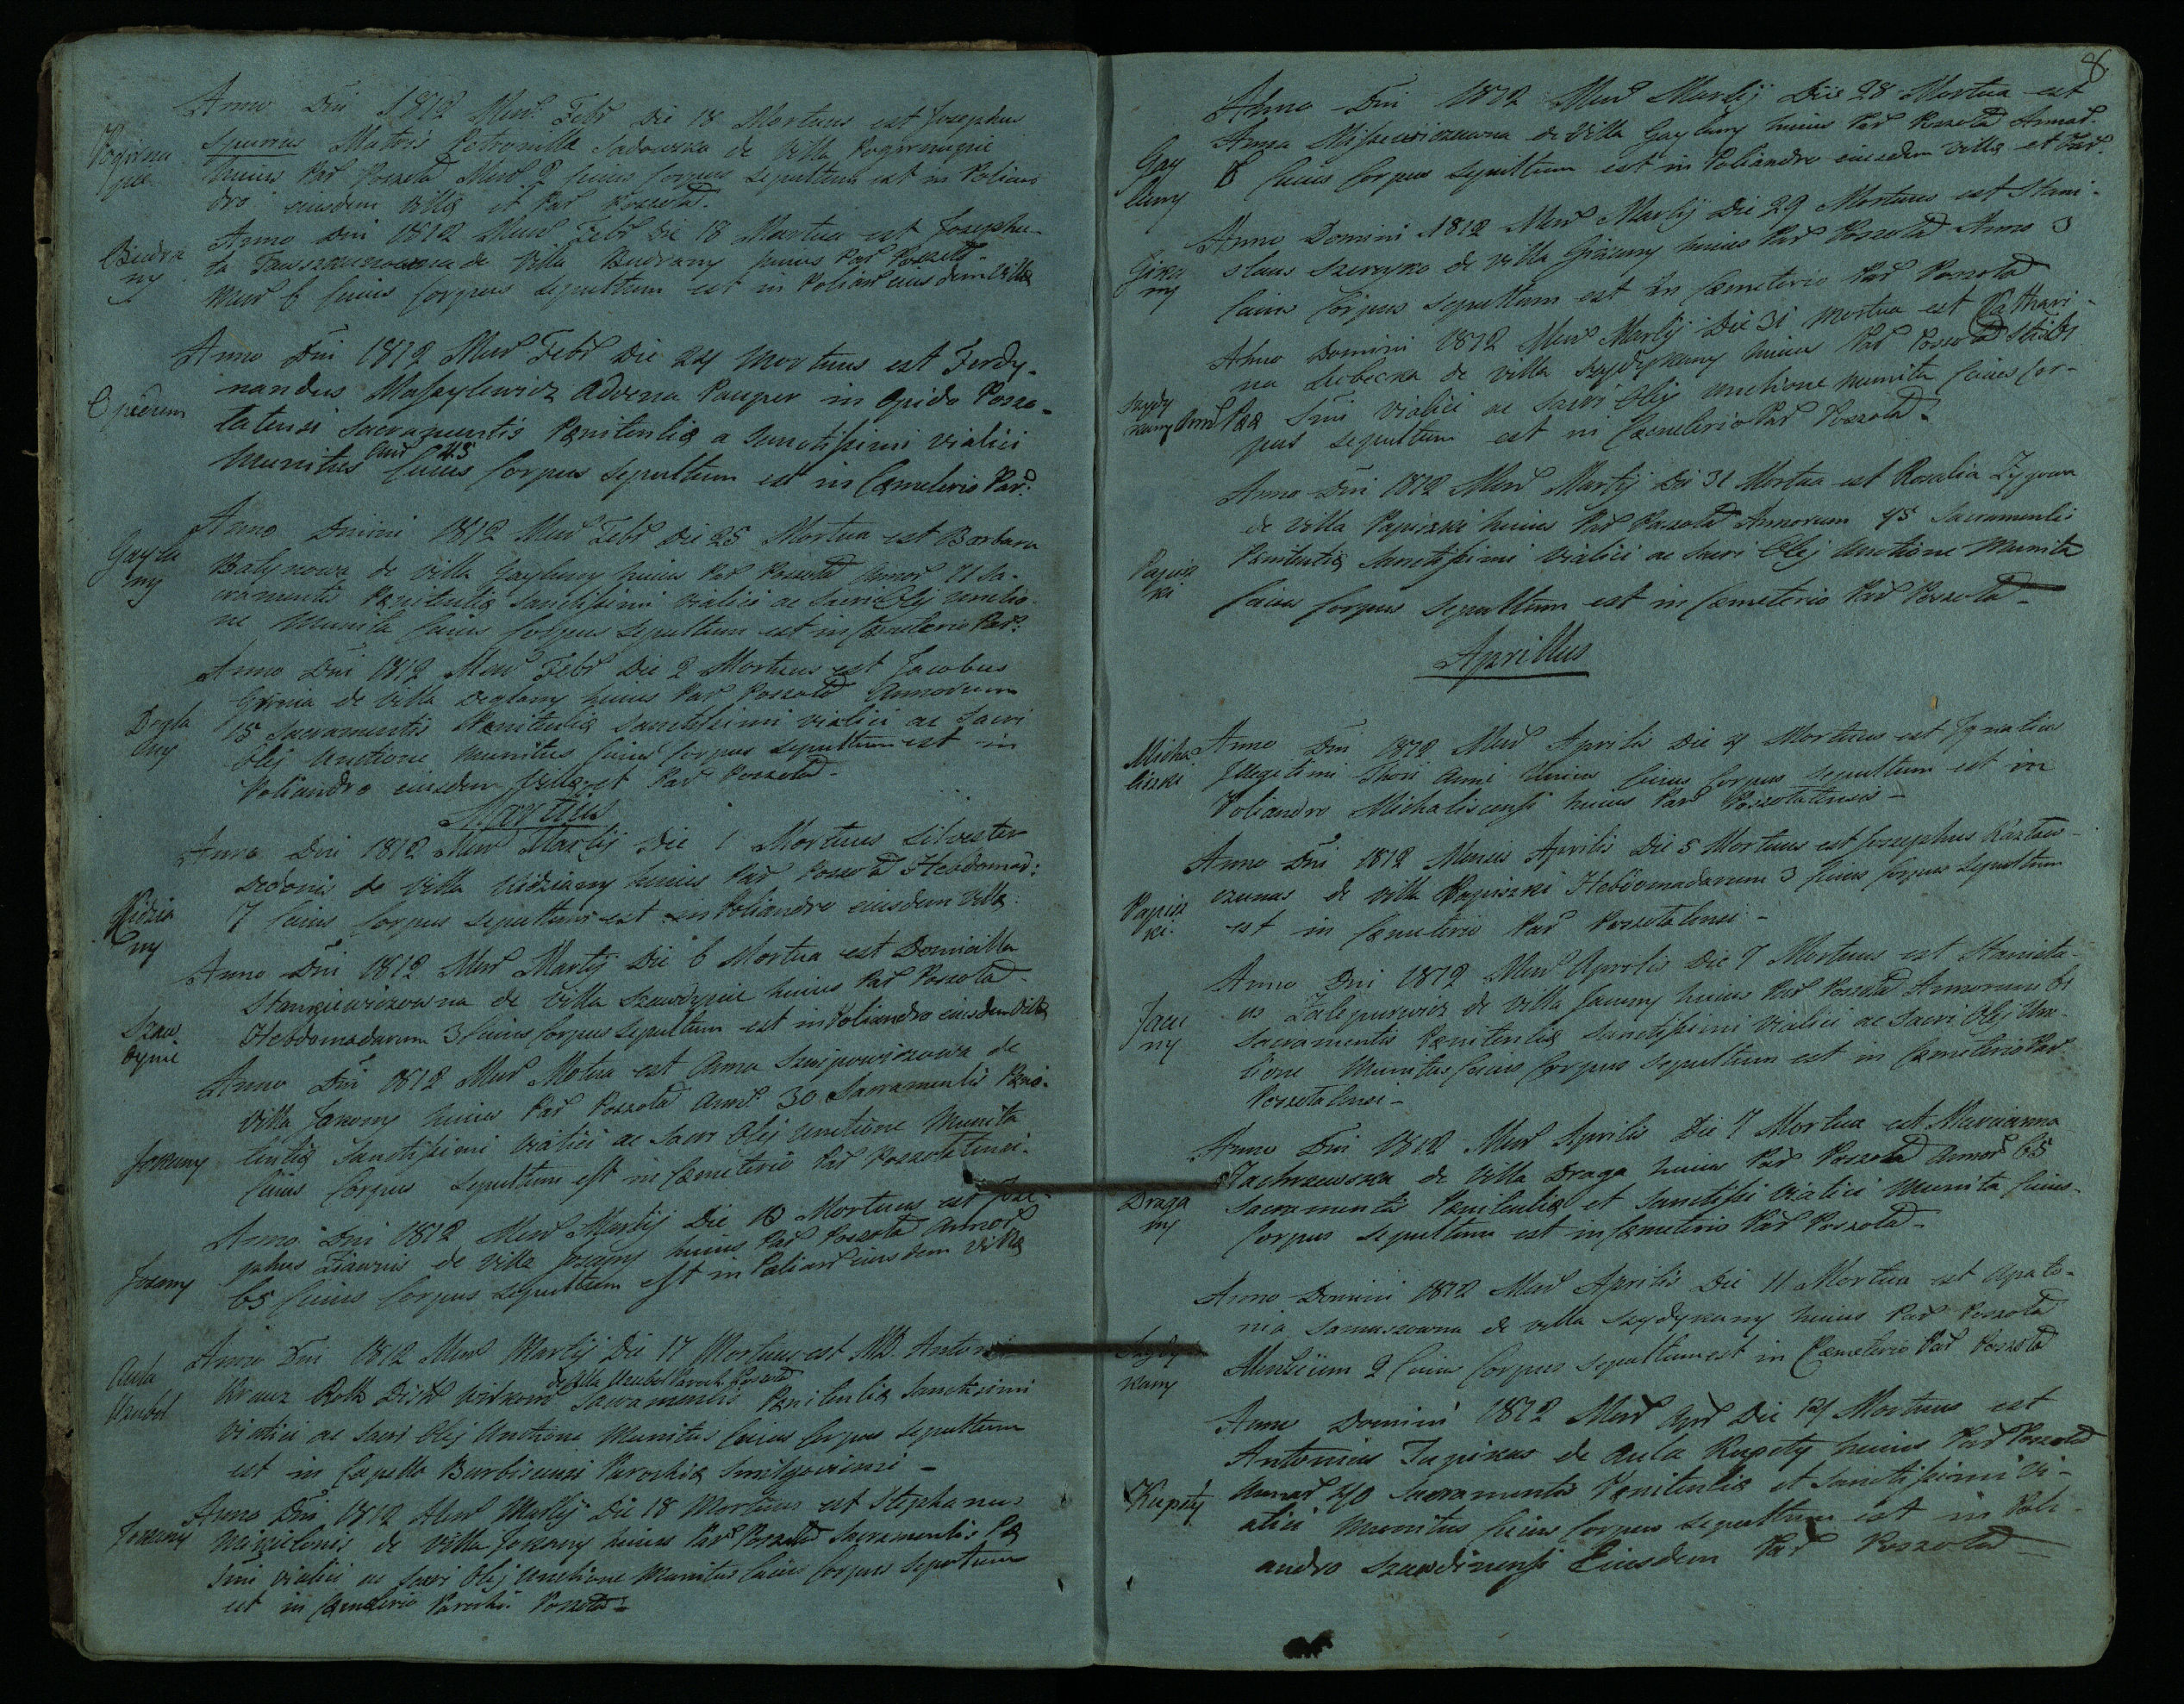 Anno Dni 1812 Mens Febr Die 18 Mortuus est Josephus
Spurius Matris Petronilla Sadowska de Villa
huius Par Poszolat Mens 2 Cuius Corpus Sepultum est in Polian
dro eiusdem Villæ et Par Poszolat
Biedra
ny
Anno Dni 1812 Mens Febr Die 18 Mortua est Josepha
ta de Villa Biedrany huius Par Poszolat
Mens 6 Cuius Corpus Sepultum est in Poliand eiusdem Villæ
Opidum
Anno Dni 1812 Mens Febr Die 24 Mortuus est Ferdy-
nandus Advena Pauper in Opido Poszo-
latensi Sacramentis Pænitentiæ a Sanctissimi Viatici
Munitus Anno 45 Cuius Corpus Sepultum est in Cæmeterio Par:
Gaylu
ny
Anno Dnini 1812 Mens Febr Die 25 Mortua est Barbara
Balynowa de Villa Gayluny huius Par Poszolat Annor 71 Sa-
cramentis Pænitentiæ Sanctissimi Viatici ac Sacri Olej Unctio
ne Munita Cuius Corpus Sepultum est in Cæmeterio Par:
Anno Dni 1812 Mens Febr Die 2 Mortuus est Jacobus
de Villa Deglany huius Par Poszolat Annorum
15 Sacramentis Pænitentiæ Sanctissimi Viatici ac Sacri
Olej Unctione Munitus Cuius Corpus Sepultum est in
Poliandro eiusdem Villæ et Par Poszolat-
Martius
Anno Dni 1812 Mens Martij Die 1 Mortuus Silvester
Dedonis de Villa Kidziany huius Par Poszolat Hebdomad:
7 Cuius Corpus Sepultum est in Poliandro eiusdem Villæ
Kidzia
ny
Anno Dni 1812 Mens Martij Die 6 Mortua est Domicilla
Stankiewiczowna de Villa Szawdynie huius Par Poszolat
Hebdomadarum 3 Cuius Corpus Sepultum est in Poliandro eiusdem Villæ
Szaw
dynie
Anno Dni 1812 Mens Motua est Anna de
Villa Jokany huius Par Poszolat Annor 30 Sacramentis Pæni-
tentiæ Sanctissimi Viatici ac Sacri Olej Unctione Munita
Cuius Corpus Sepultum est in Cæmeterio Par Poszolatensi.
Jokany
Anno Dni 1812 Mens Martij Die 10 Mortuus est Jose-
phus de Villa Jokany huius Par Poszolat Annor
65 Cuius Corpus Sepultum est in Poliand eiusdem Villæ
Jokany
Aula
Uzubol
Anno Dni 1812 Mens Martij Die 17 Mortuus est MD Antoni
de Aula Uzubol Paroch Poszolat
Sacramentis Pænitentiæ Sanctissimi
Viatici ac Sacri Olej Unctione Munitus Cuius Corpus Sepultum
est in Capella Burbiscensi Parochiæ Smilgoviensi -
Jokany
Anno Dni 1812 Mens Martij Die 18 Mortuus est Stephanus
de Villa Jokany huius Par Poszolat Sacramentis Pæ
Smi Viatici ac Sacri Olej Unctione Munitus Cuius Corpus Sepultum
est in Cæmeterio Parochi Poszolat-
8
Gay
luny
Anno Dni 1812 Mens Martij Die 28 Mortua est
Anna de Villa Gayluny huius Par Poszolat Annor
6 Cuius Corpus Sepultum est in Poliandro eiusdem Villæ et Par
Anno Domini 1812 Mens Martij Die 29 Mortuus est Stani-
slaus de Villa Gikuny huius Par Poszolat Anno 3
Cuius Corpus Sepultum est in Cæmeterio Par Poszolat
Anno Domini 1812 Mens Martij Die 31 Mortua est Kathari-
na de Villa Szydykany huius Par Poszolat
Smi Viatici ac Sacri Olej Unctione Munita Cuius Cor-
pus Sepultum est in Cæmeterio Par Poszolat-
Szydy
kany
Anno Dni 1812 Mens Martij Die 31 Mortua est Rosalia Zygowa
de Villa Papiszki huius Par Poszolat Annorum 45 Sacramentis
Pænitentiæ Sanctissimi Viatici ac Sacri Olej Unctione Munita
Cuius Corpus Sepultum est in Cæmeterio Par Poszolat-
Papisz
ki
Aprillus
Micha
liszki
Anno Dni 1812 Mens Aprilis Die 4 Mortuus est Ignatius
Illegitimi Thori Anni Unius Cuius Corpus Sepultum est in
Poliandro huius Par Poszolatensis-
Anno Dni 1812 Mensis Aprilis Die 5 Mortuus est Josephus
de Villa Papiszki Hebdomadarum 3 Cuius Corpus Sepultum
est in Cæmeterio Par Poszolatensi-
Papisz
ki
Anno Dni 1812 Mens Aprilis Die 7 Mortuus est Stanisla-
us de Villa Januny huius Par Poszolat Annorum 61
Sacramentis Pænitentiæ Sanctissimi Viatici ac Sacri Olej Unc-
tione Munitus Cuius Corpus Sepultum est in Cæmeterio Par
Poszolatensi-
Anno Dni 1812 Mens Aprilis Die 7 Mortua est Marianna
de Villa Draga huius Par Poszolat Annor 65
Sacramentis Pænitentiæ et Sanctissi Viatici Munita Cuius
Corpus Sepultum est in Cæmeterio Par Poszolat-
Draga
ny
Anno Domini 1812 Mens Aprilis Die 11 Mortua est Apolo-
nia de Villa Szydykany huius Par Poszolat
Mensium 2 Cuius Corpus Sepultum est in Cæmeterio Par Poszolat
Anno Domini 1812 Mens Apr Die 14 Mortuus est
Antonius Tupikas de Aula Rupety huius Par Poszolat
Annor 40 Sacramentis Pænitentiæ et Sanctissimi Vi-
atici Munitus Cuius Corpus Sepultum est in Poli-
andro Eiusdem Par Poszolat